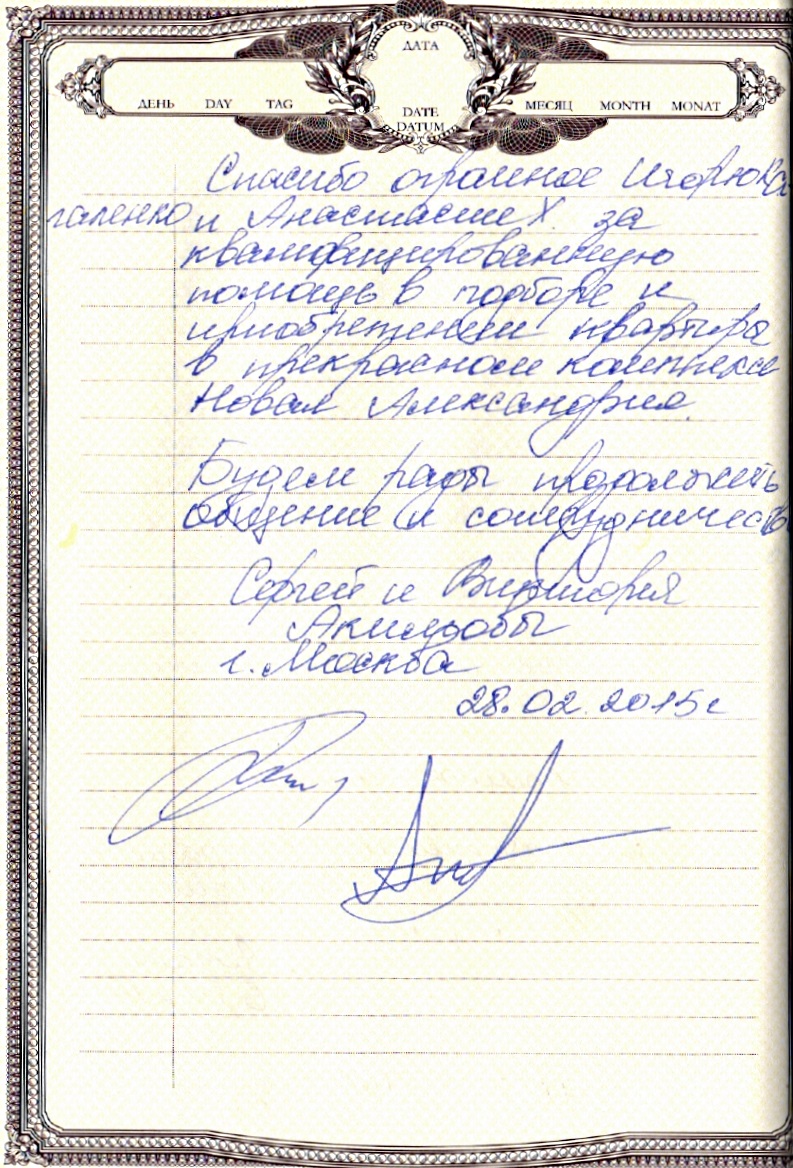 ДАТА
ДЕНЬ DAY TAG
DATE
DATUM
МЕСЯЦ MONTH MONAT
Спасибо огромное Игорю
и Анастасии Х. за
квалифицированную
помощь в подборе и
приобретении квартиры
в прекрасном комплексе
Новая Александрия.
Будем рады продолжить
общение и сотрудничество
Сергей и Виктория
г. Москва
28.02.2015г